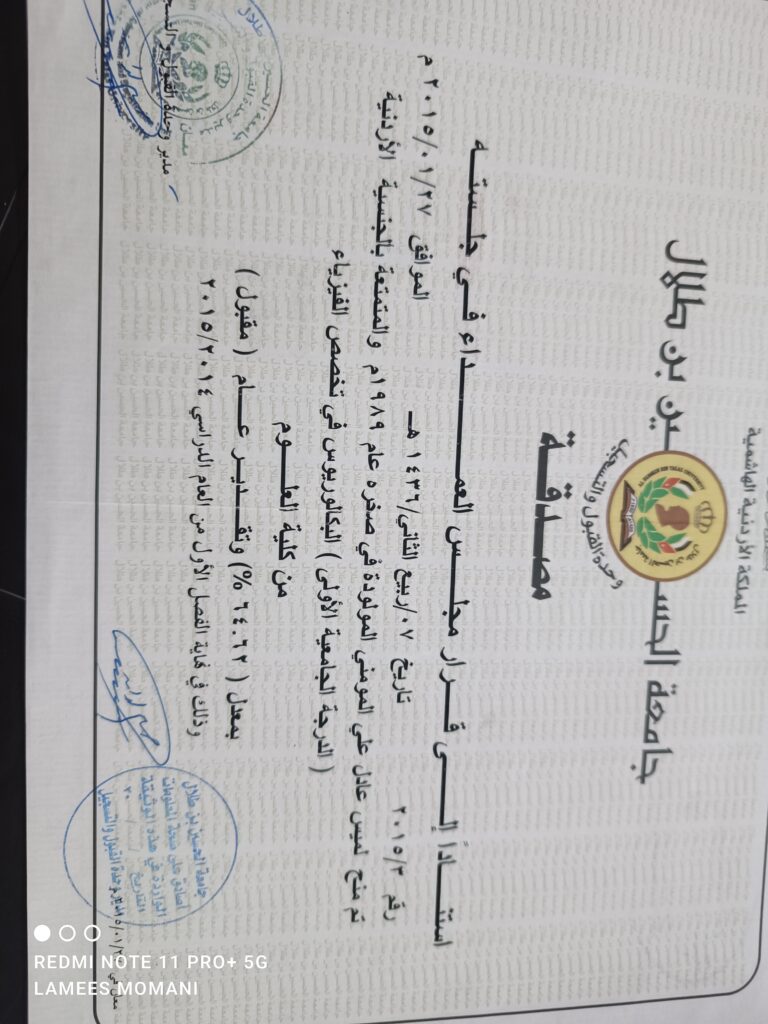 المملكة الأردنية الهاشمية
جامعة الحسين بن طلال
AL-HUSSEIN BIN TALAL UNIVERSITY
جامعة الحسين بن طلال
وحدة القبول والتسجيل
مصدقة
استناداً إلى قرار مجلس العمداء في جلسته
رقم ٢٠١٥/٣ تاريخ ٠٧/ربيع الثاني/١٤٣٦ هـ الموافق ٢٠١٥/٠١/٢٧ م
تم منح لميس عادل علي المومني المولودة في صخره عام ١٩٨٩م والمتمتعة بالجنسية الأردنية
( الدرجة الجامعية الأولى ) البكالوريوس في تخصص الفيزياء
من كلية العلوم
بمعدل ( ٦٤.٦٢ %) وتقدير عام ( مقبول )
وذلك في نهاية الفصل الأول من العام الدراسي ٢٠١٥/٢٠١٤
مدير وحدة القبول والتسجيل
جامعة الحسين بن طلال
معان
جامعة الحسين بن طلال
اصادق على صحة المعلومات
الواردة في هذه الوثيقة
التاريخ / / ٢٠
وحدة القبول والتسجيل
REDMI NOTE 11 PRO+ 5G
LAMEES MOMANI